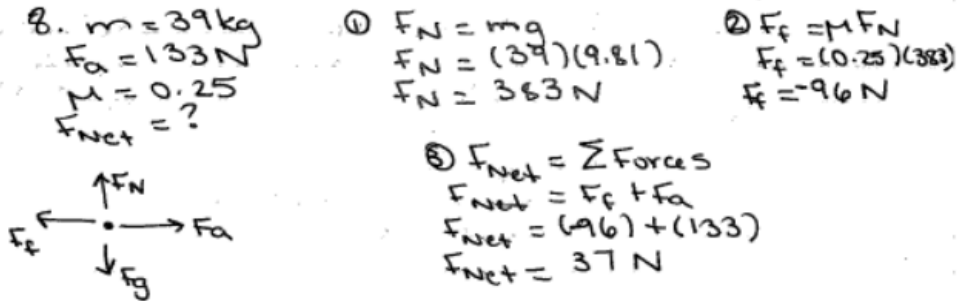 8. m = 39kg
Fa = 133N
μ = 0.25
FNet = ?
① FN = mg
FN = (39)(9.81)
FN = 383N
② Ff = μFN
Ff = (0.25)(383)
Ff = -96N
③ FNet = Σ Forces
FNet = Ff + Fa
FNet = (-96) + (133)
FNet = 37N
FN
Ff
Fa
Fg